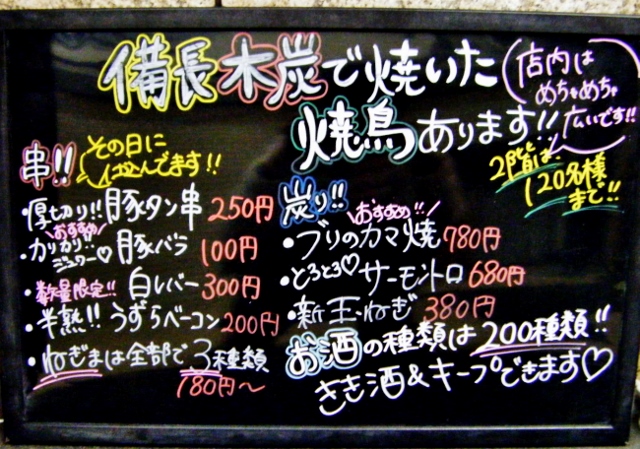 備長木炭で焼いた
焼鳥あります!!
店内は
めちゃめちゃ
広いです!!
2階は、
120名様
まで!!
串!!
その日に
仕込んでます!!
・厚切り!!豚タン串 250円
おすすめ
・カリカリ!!ジュワー♡豚バラ 100円
・数量限定!!白レバー 300円
・半熟!!うずらベーコン 200円
・ねぎまは全部で3種類
180円〜
炭り!!
おすすめ!!
・ブリのカマ焼 780円
・とろとろ♡サーモントロ 680円
・新玉ねぎ 380円
お酒の種類は200種類!!
きき酒&キープできます♡